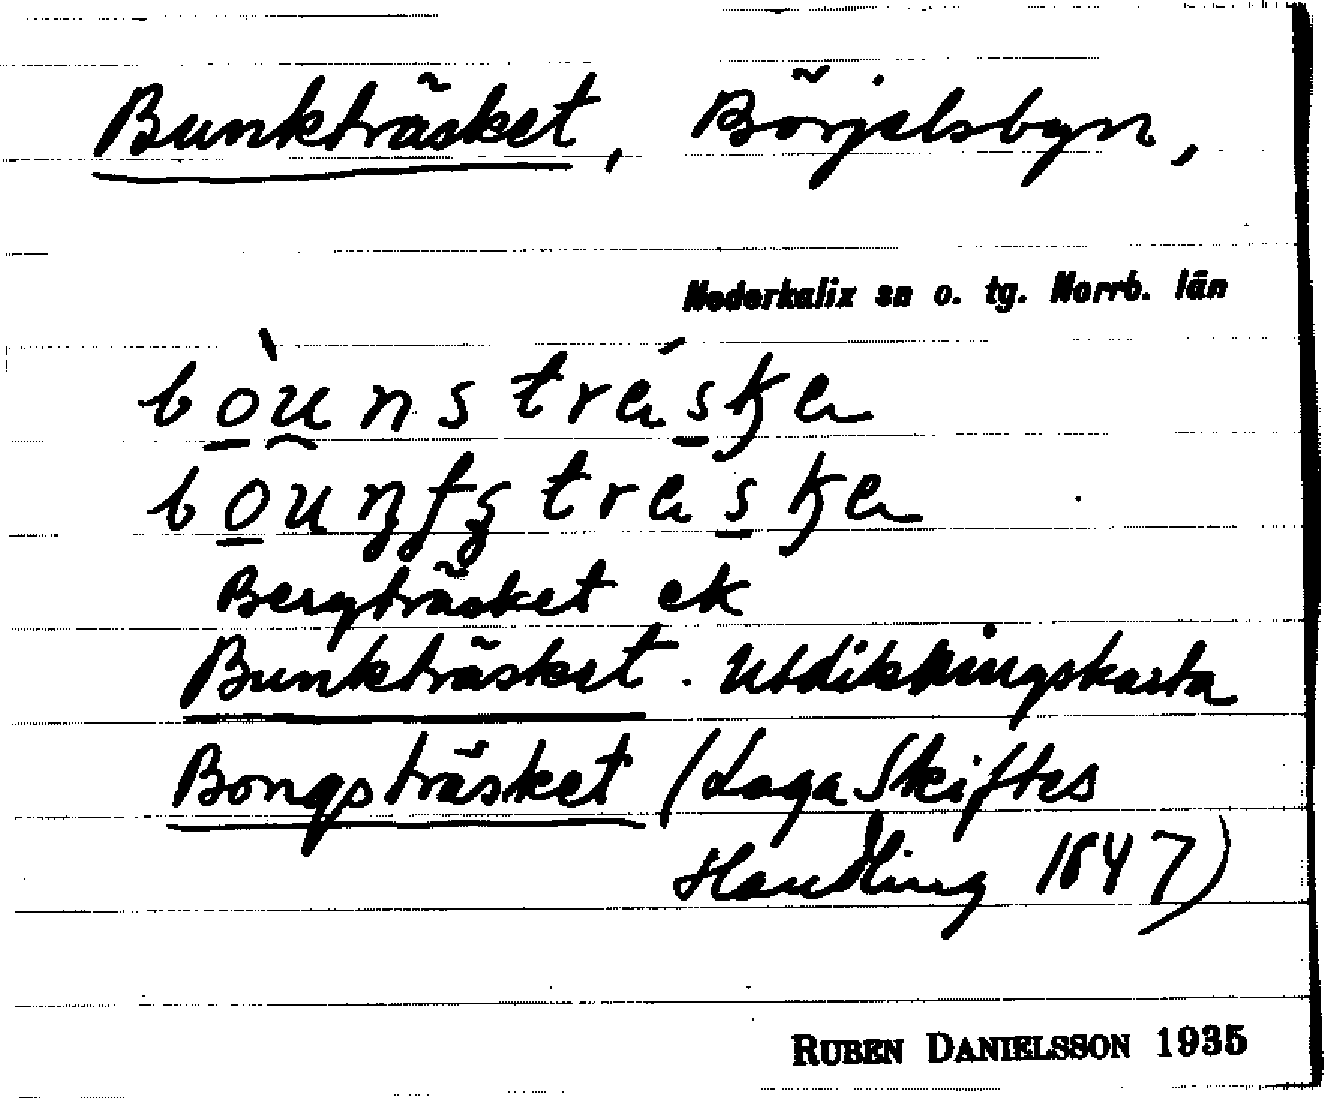 Bunkträsket, Börjelsbyn,
Nederkalix sn o. tg. Norrb. län
bòunsträ́ska
bounfstraska
Bergträsket ek
Bunkträsket. Utdikningskarta
Bongsträsket (Laga Skiftes
Handling 1847)
RUBEN DANIELSSON 1935